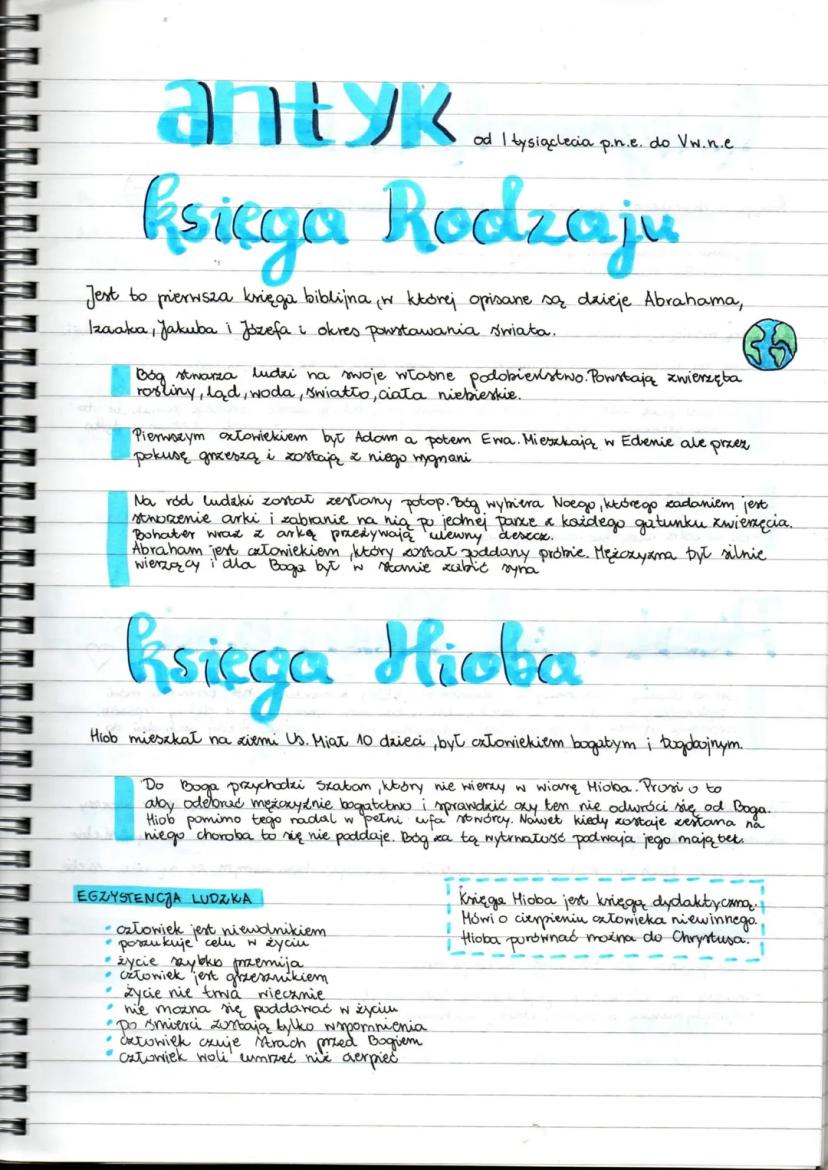 antyk od I tysiąclecia p.n.e. do V w.n.e
księga Rodzaju
Jest to pierwsza księga biblijna, w której opisane są dzieje Abrahama,
Izaaka, Jakuba i Józefa i okres powstawania świata.
Bóg stwarza ludzi na swoje własne podobieństwo. Powstają zwierzęta
rośliny, ląd, woda, światło, ciała niebieskie.
Pierwszym człowiekiem był Adam a potem Ewa. Mieszkają w Edenie ale przez
pokusę grzeszą i zostają z niego wygnani
Na ród ludzki został zesłany potop. Bóg wybiera Noego, którego zadaniem jest
stworzenie arki i zabranie na nią po jednej parze z każdego gatunku zwierzęcia.
Bohater wraz z arką przeżywają ulewny deszcz.
Abraham jest człowiekiem, który został poddany próbie. Mężczyzna był silnie
wierzący i dla Boga był w stanie zabić syna
księga Hioba
Hiob mieszkał na ziemi Us. Miał 10 dzieci, był człowiekiem bogatym i bogobojnym.
Do Boga przychodzi Szatan, który nie wierzy w wiarę Hioba. Prosi o to
aby odebrać mężczyźnie bogatctwo i sprawdzić czy ten nie odwróci się od Boga.
Hiob pomimo tego nadal w pełni ufa stwórcy. Nawet kiedy zostaje zesłana na
niego choroba to się nie poddaje. Bóg za tą wytrwałość podwaja jego majątek.
EGZYSTENCJA LUDZKA
• człowiek jest niewolnikiem
• poszukuje celu w życiu
• życie szybko przemija
• człowiek jest grzesznikiem
• życie nie trwa wiecznie
• nie można się poddawać w życiu
• po śmierci zostają tylko wspomnienia
• człowiek czuje strach przed Bogiem
• człowiek woli umrzeć niż cierpieć
Księga Hioba jest księgą dydaktyczną.
Mówi o cierpieniu człowieka niewinnego.
Hioba porównać można do Chrystusa.